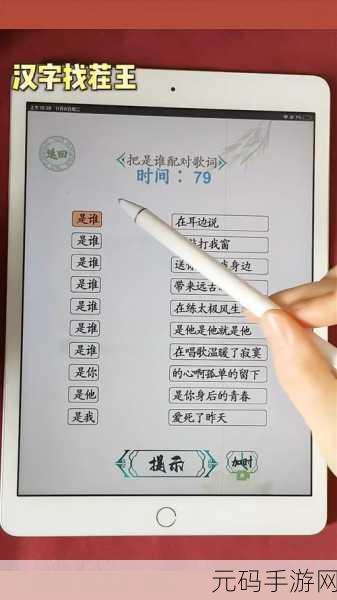 汉字找茬王
返回
把是谁配对歌词
时间：79
是谁 在耳边说
是谁 打我窗
是谁 送你 身边
是谁 带来远古
是谁 在练太极风生
是谁 是他是他就是他
是谁 在唱歌温暖了寂寞
是你 的心啊孤单的留下
是他 是你身后的青春
是我 爱死了昨天
提示 加时
元码手游网